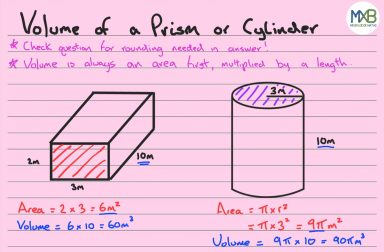 Volume of a Prism or Cylinder
MXB
* Check question for rounding needed in answer!
* Volume is always an area first, multiplied by a length.
3m
2m
10m
3m
10m
Area = 2 x 3 = 6m²
Volume = 6 x 10 = 60m³
Area = πxr²
= πx3² = 9πm²
Volume = 9π x 10 = 90πm³